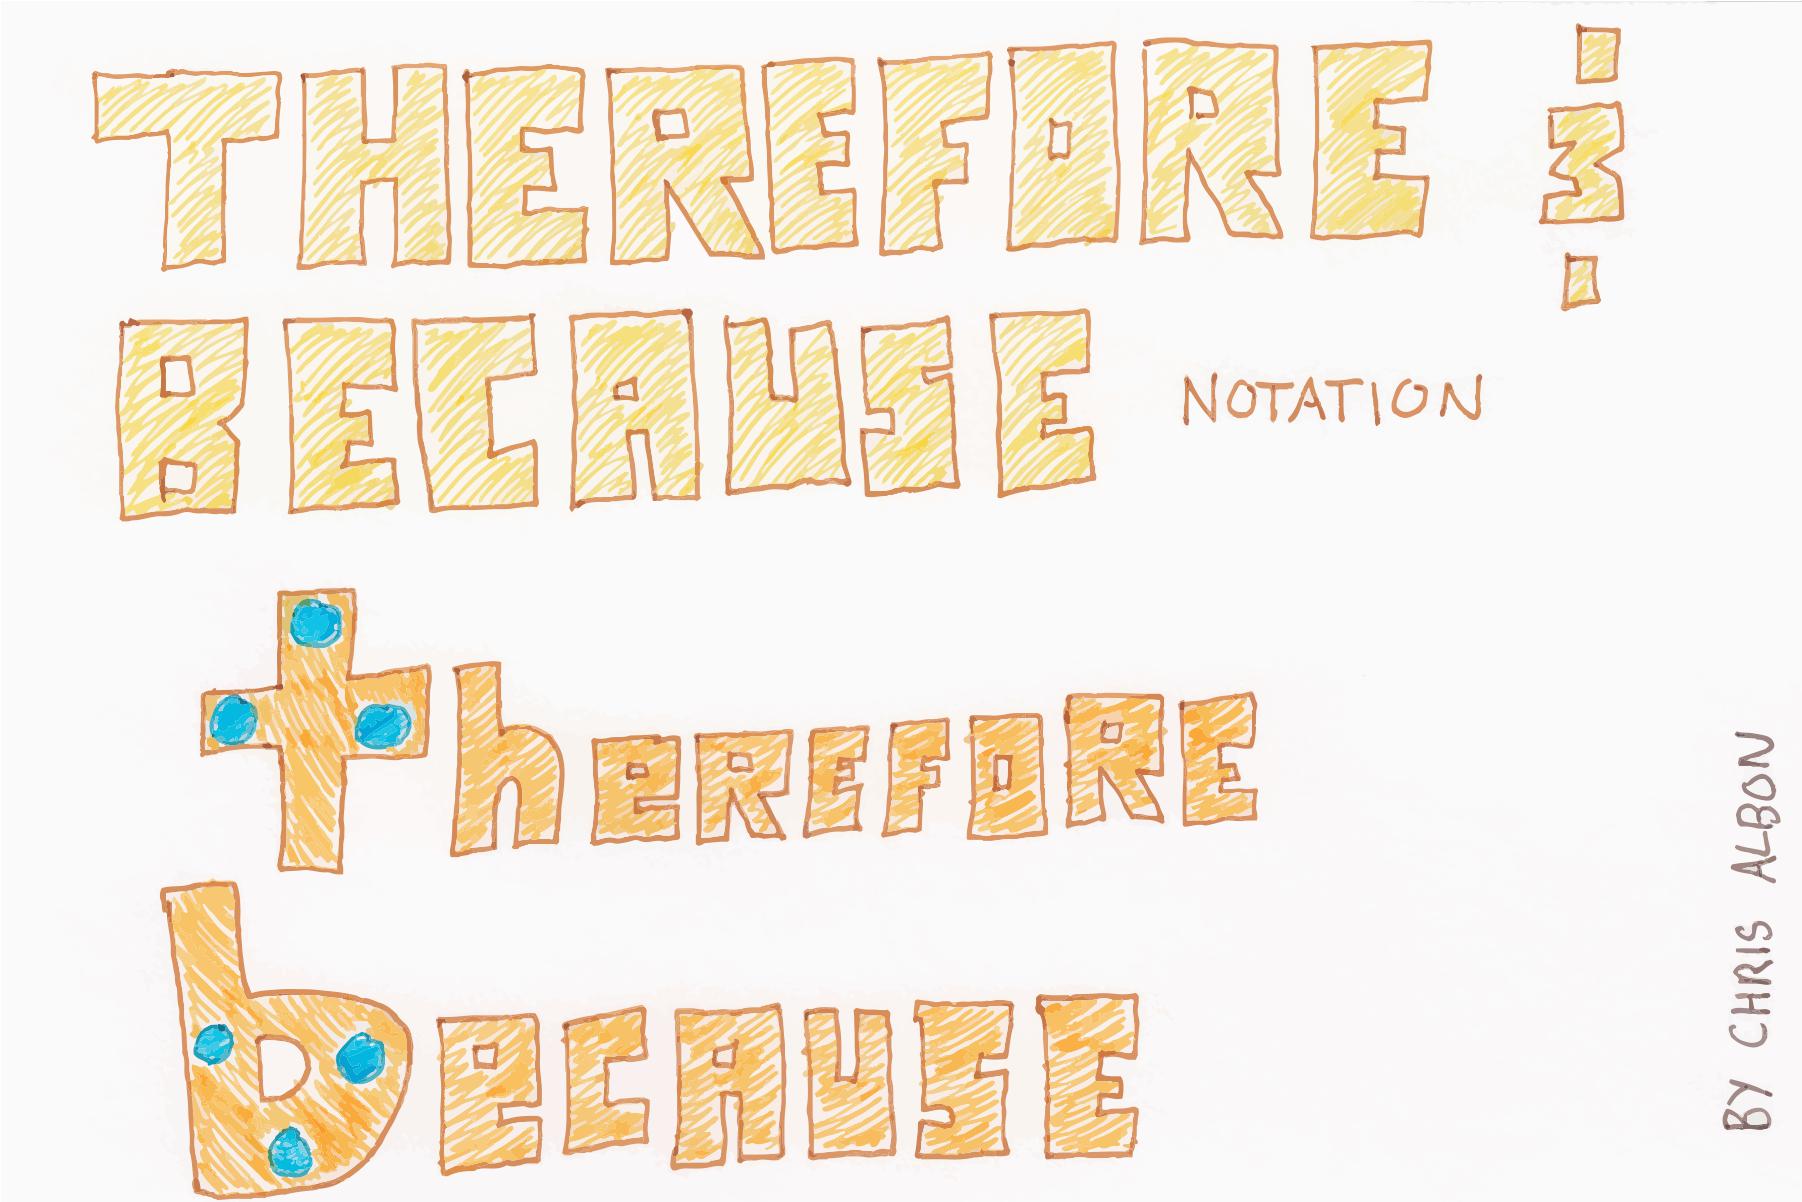 THEREFORE
BECAUSE NOTATION
thereFORE
becAUSE
BY CHRIS ALBON